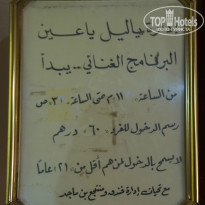 TOP HOTELS
ياليل ياعين
البرنامج الغنائي .. يبدأ
من الساعة ١١ر٣٠ حتى الساعة ٣٠ر ص
رسم الدخول للفرد ٦٠ درهم
لا يسمح بالدخول لمن هم أقل من ٢١ عاماً
مع تحيات إدارة فندق ومنتجع بن ماجد